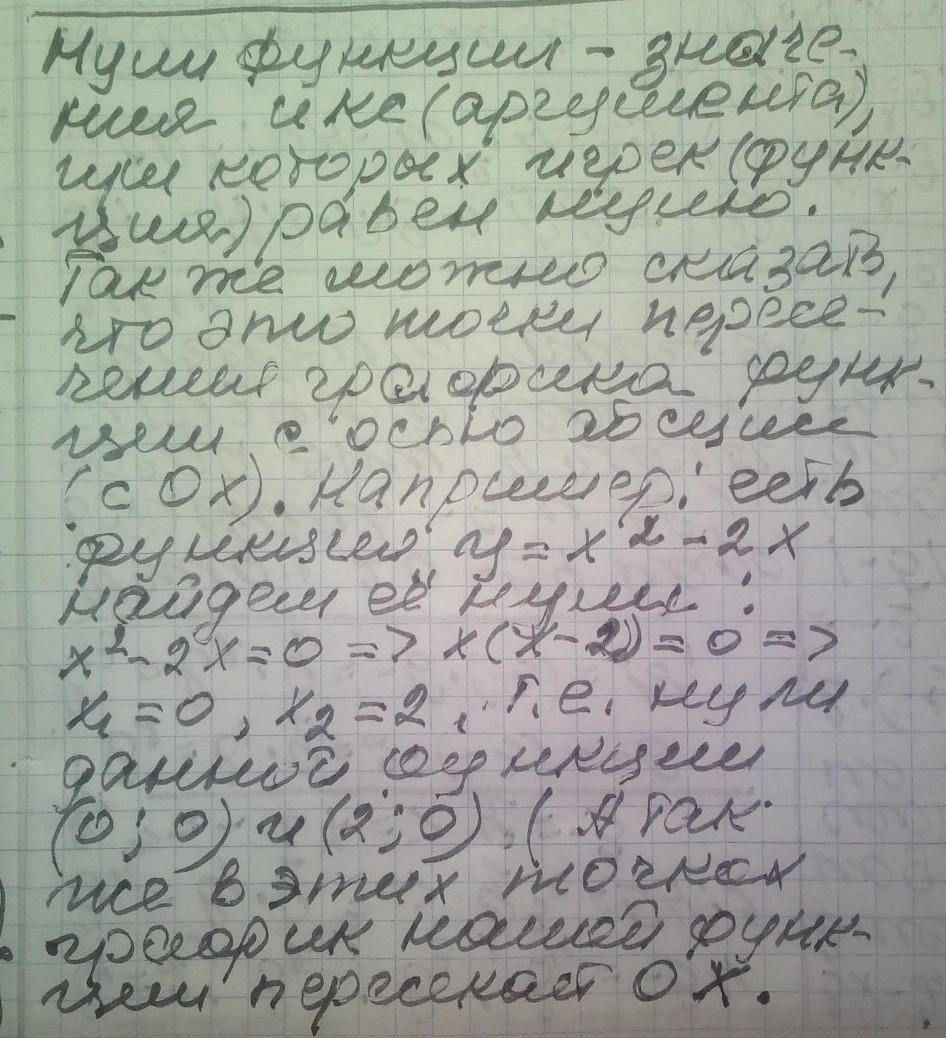 Нули функции - значе-
ния икс (аргумента),
при которых игрек (функ-
ция) равен нулю.
Так же можно сказать,
что это точки пересе-
чения графика функ-
ции с осью абсцисс
(с Ох). Например: есть
функция y = x² - 2x
найдем её нули :
x² - 2x = 0 => x(x - 2) = 0 =>
x₁ = 0 , x₂ = 2 , т.е. нули
данной функции
(0 ; 0) и (2 ; 0) . ( А так
же в этих точках
график нашей функ-
ции пересекает ОХ.